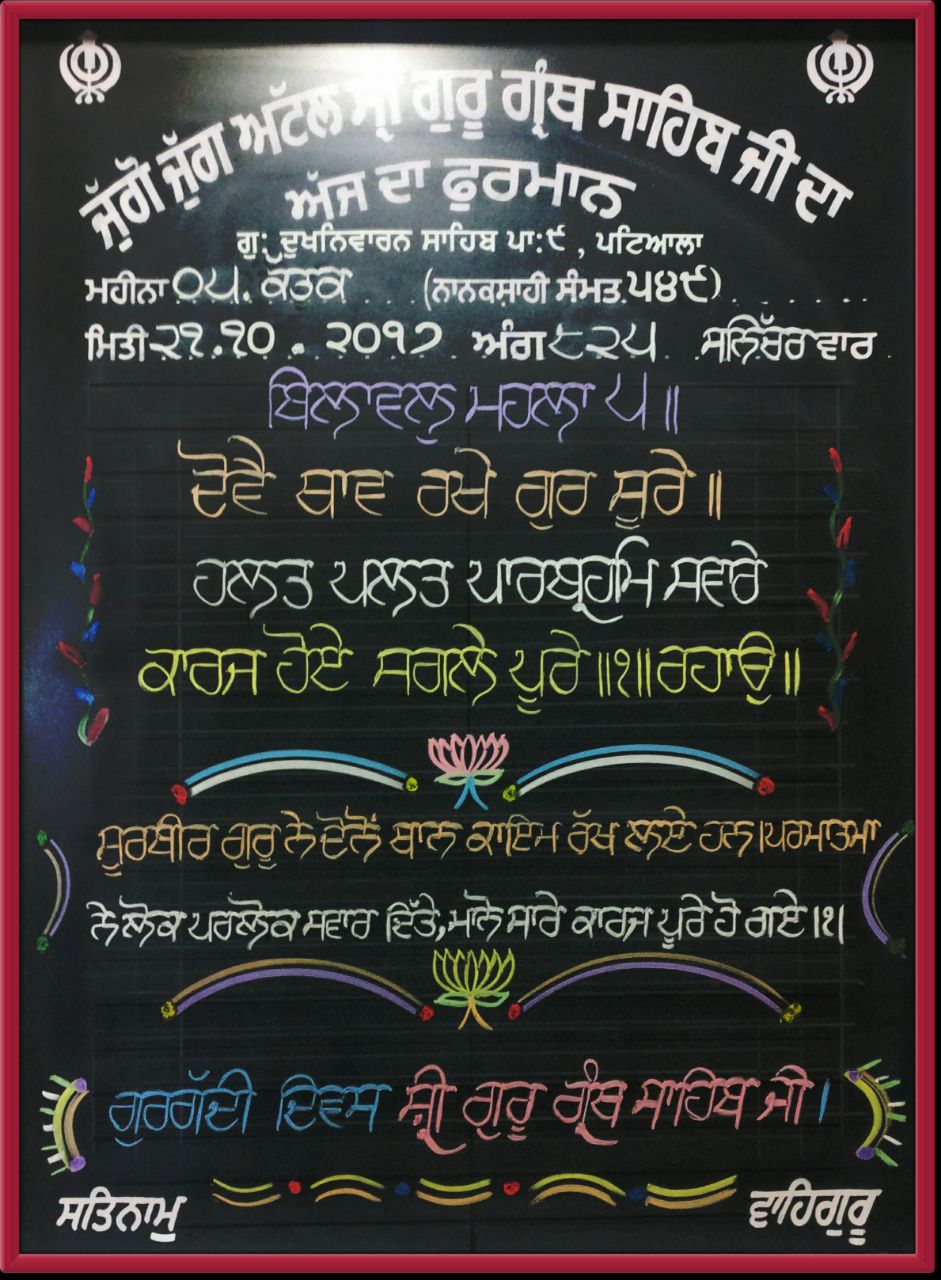 ਜੁੱਗੋ ਜੁੱਗ ਅੱਟਲ ਸ੍ਰੀ ਗੁਰੂ ਗ੍ਰੰਥ ਸਾਹਿਬ ਜੀ ਦਾ
ਅੱਜ ਦਾ ਫੁਰਮਾਨ
ਗੁ: ਦੁਖਨਿਵਾਰਨ ਸਾਹਿਬ ਪਾ:੯ , ਪਟਿਆਲਾ
ਮਹੀਨਾ ੦੫. ਕੱਤਕ (ਨਾਨਕਸ਼ਾਹੀ ਸੰਮਤ ੫੪੯)
ਮਿਤੀ ੨੧.੧੦.੨੦੧੭ ਅੰਗ ੮੨੫ ਸਨਿੱਚਰਵਾਰ
ਬਿਲਾਵਲੁ ਮਹਲਾ ੫ ॥
ਦੋਵੈ ਥਾਵ ਰਖੇ ਗੁਰ ਸੂਰੇ ॥
ਹਲਤ ਪਲਤ ਪਾਰਬ੍ਰਹਮਿ ਸਵਾਰੇ
ਕਾਰਜ ਹੋਏ ਸਗਲੇ ਪੂਰੇ ॥੧॥ ਰਹਾਉ ॥
ਸੂਰਬੀਰ ਗੁਰੂ ਨੇ ਦੋਨੋਂ ਥਾਨ ਕਾਇਮ ਰੱਖ ਲਏ ਹਨ। ਪਰਮਾਤਮਾ
ਨੇ ਲੋਕ ਪਰਲੋਕ ਸਵਾਰ ਦਿੱਤੇ, ਮਾਨੋ ਸਾਰੇ ਕਾਰਜ ਪੂਰੇ ਹੋ ਗਏ ।੧।
ਗੁਰਗੱਦੀ ਦਿਵਸ ਸ਼੍ਰੀ ਗੁਰੂ ਗ੍ਰੰਥ ਸਾਹਿਬ ਜੀ।
ਸਤਿਨਾਮੁ ਵਾਹਿਗੁਰੂ